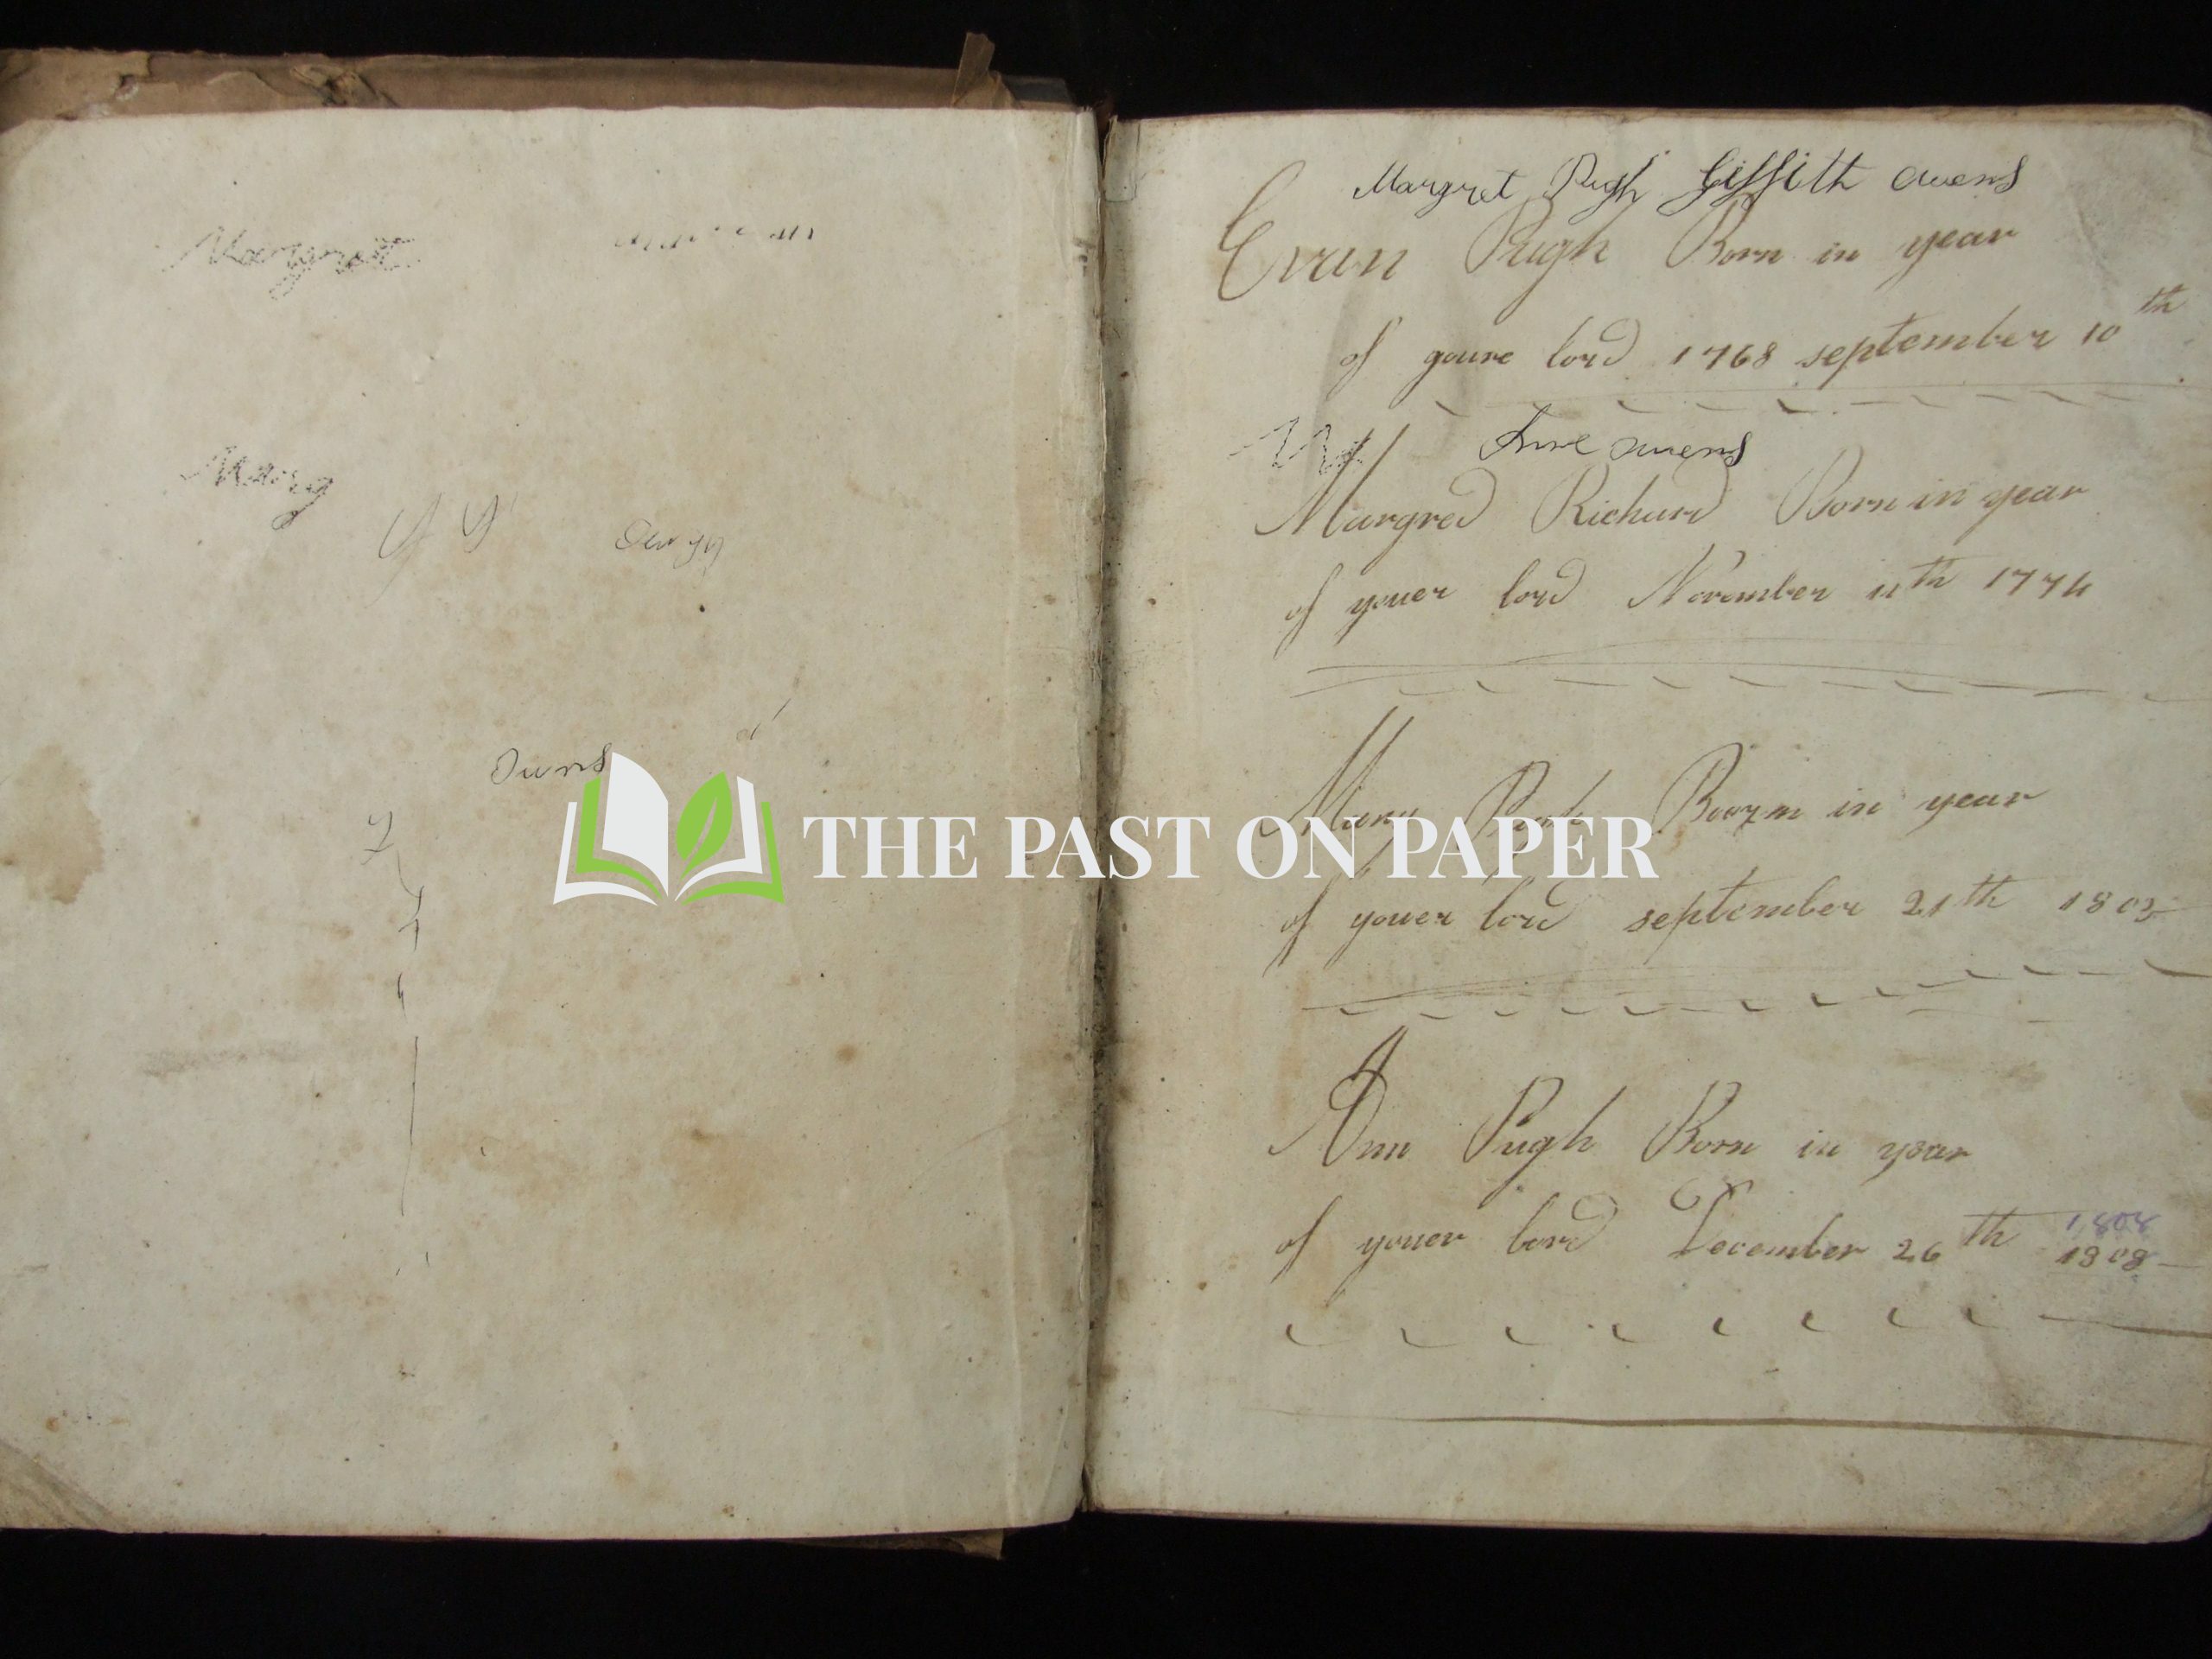 Margret
Marg
y y
Owns
THE PAST ON PAPER
Margret Pugh Giffith owens
Evan Pugh Born in year
of youre lord 1768 september 10th
owens
Margred Richard Born in year
of youer lord November 11th 1774
Mary Pugh Boorn in year
of youer lord september 21th 1802
Ann Pugh Born in year
of youer lord December 26th 1808
1808